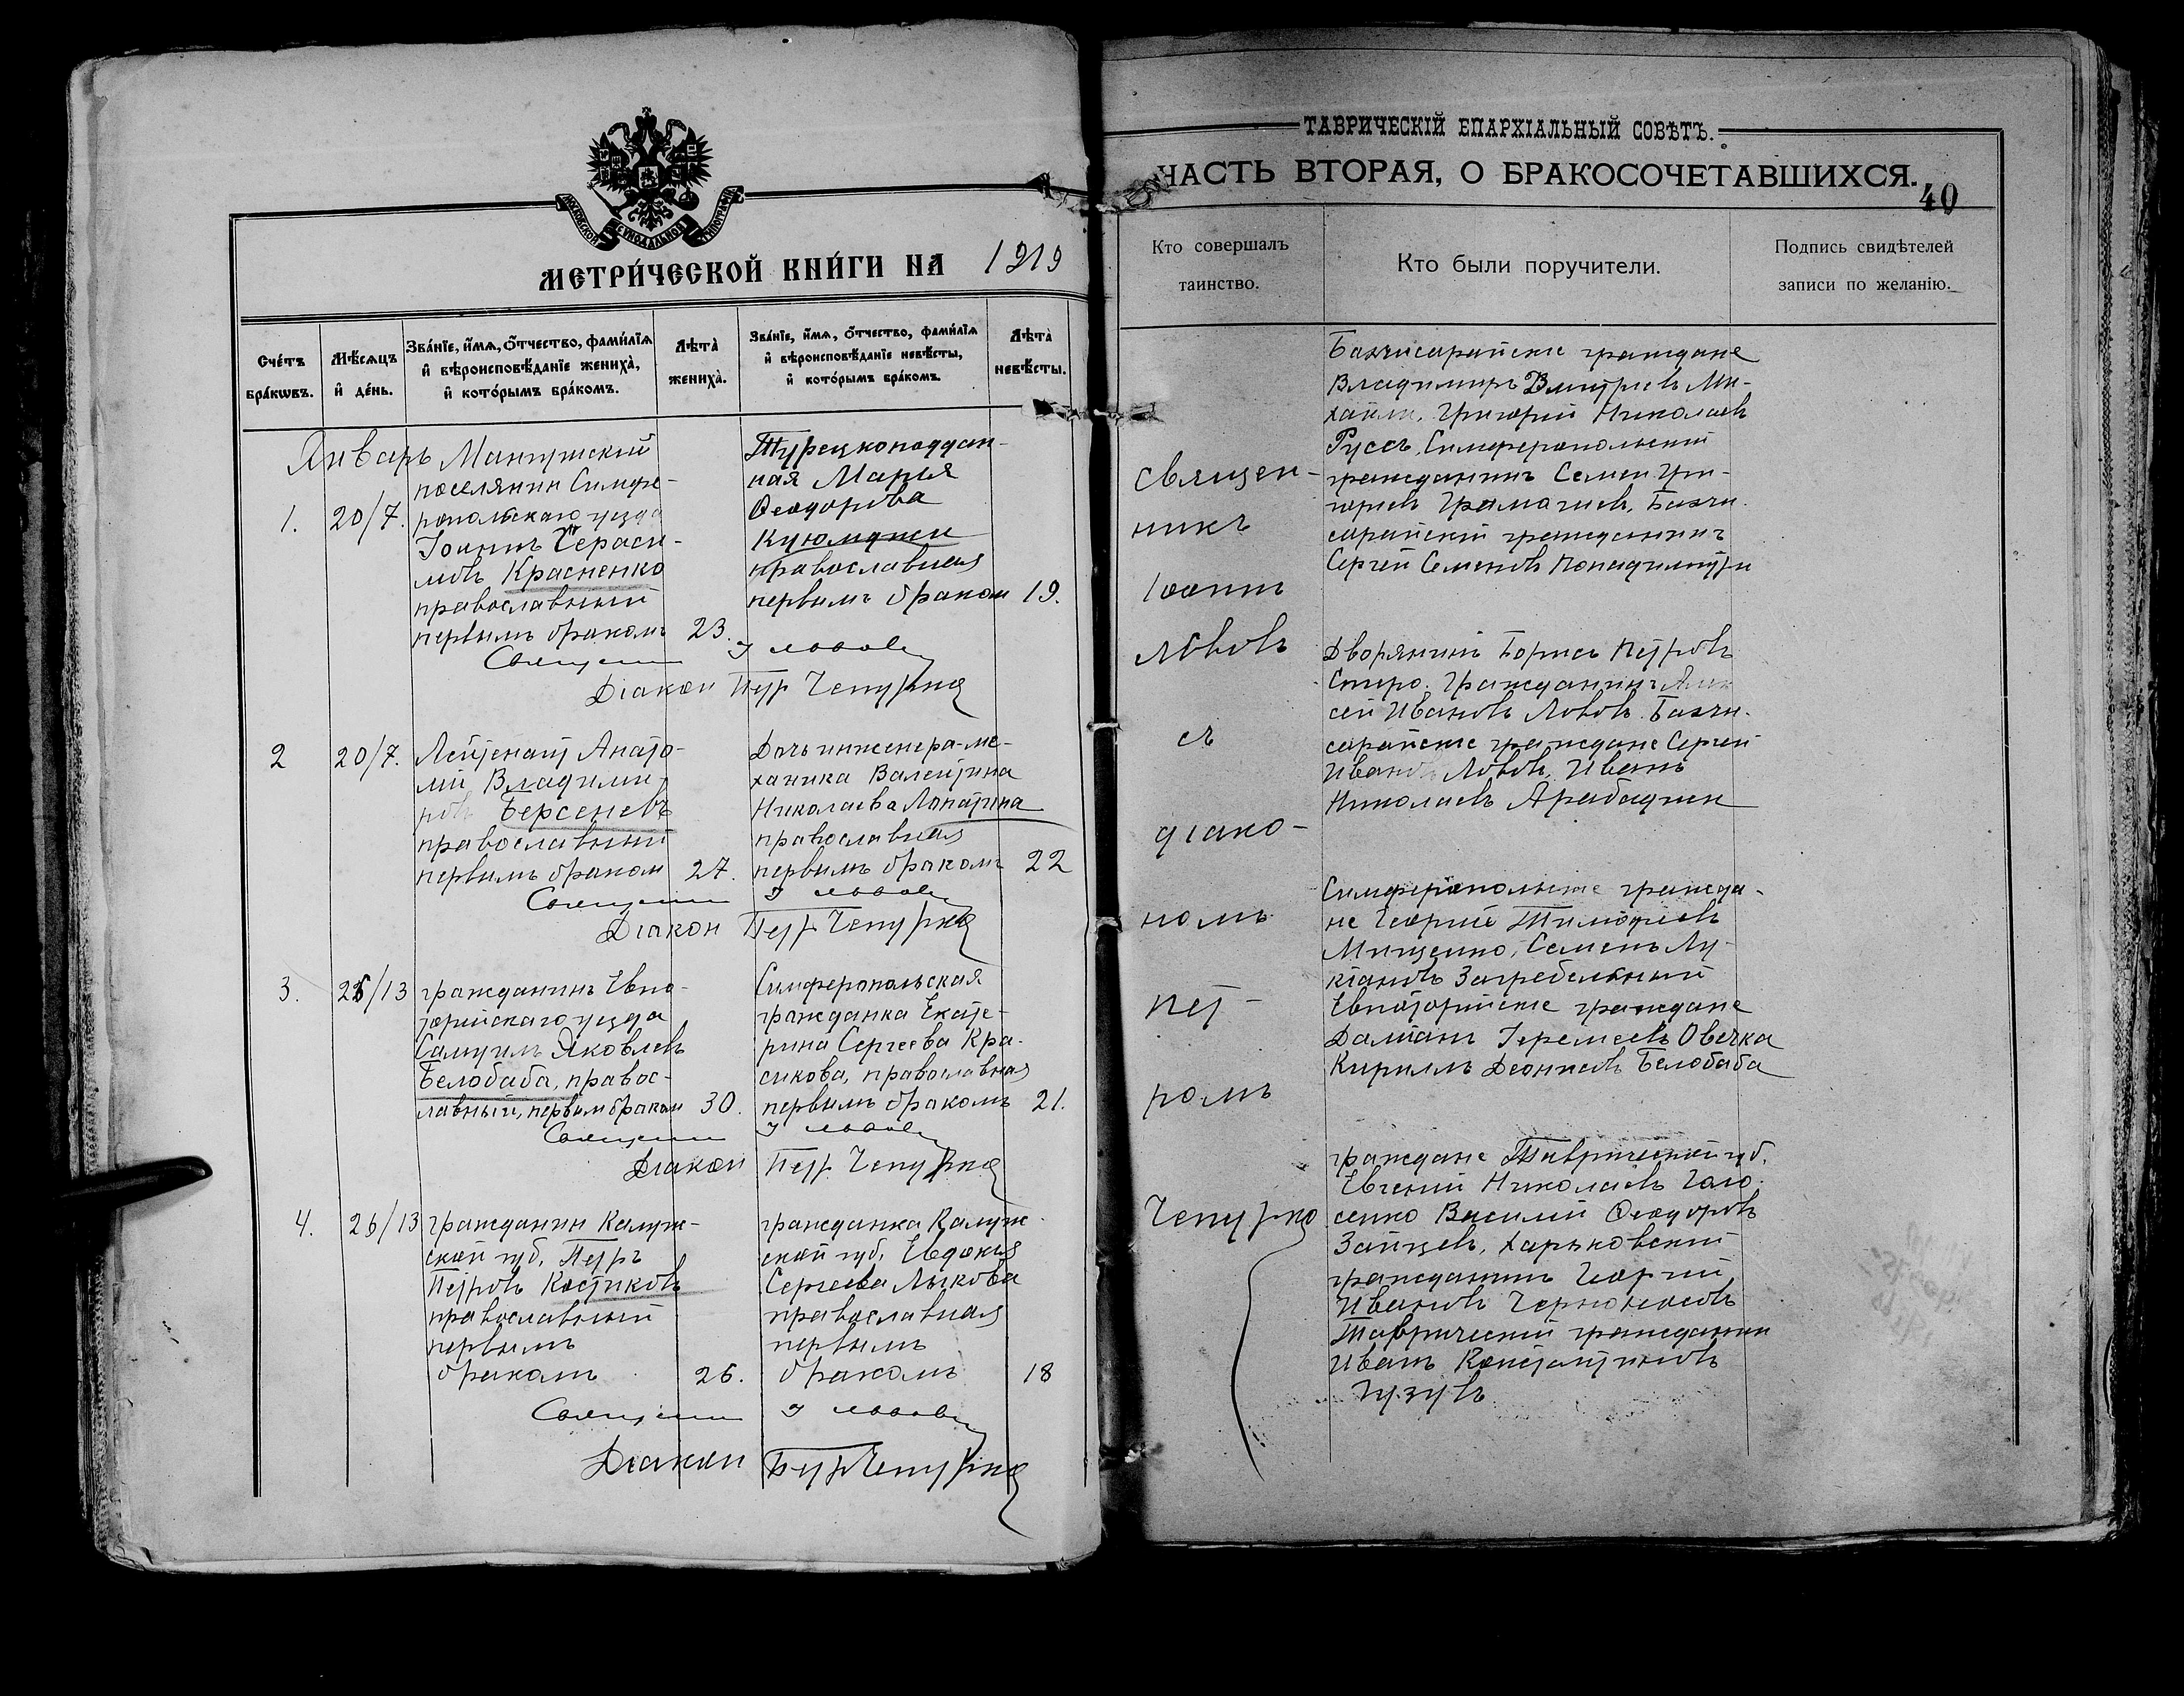 МОСКОВСКОЙ СѴНОДАЛЬНОЙ ТИПОГРАФІИ
МЕТРИ́ЧЕСКОЙ КНИ́ГИ НА 1919
Сче́тъ бра́кѡвъ.
Мѣ́сяцъ и҆ де́нь.
Зва́нїе, и҆́мѧ, ѻ҆́тчество, фами́лїѧ
и҆ вѣроисповѣ́данїе жениха̀,
и҆ кото́рымъ бра́комъ.
Лѣта̀ жениха̀.
Зва́нїе, и҆́мѧ, ѻ҆́тчество, фами́лїѧ
и҆ вѣроисповѣ́данїе невѣ́сты,
и҆ кото́рымъ бра́комъ.
Лѣта̀ невѣ́сты.
Январь
1.
20/7.
Мангушскій
поселянин Симфе-
ропольскаго уезда
Іоаннъ Гераси-
мовъ Красненко
православный
первымъ бракомъ 23.
Турецкоподдан-
ная Марья
Феодорова
Куюмджи
православная
первымъ браком 19.
Священи І Ловов
Діакон Петр Чепурко
2
20/7.
Лейтенант Анато-
лій Владими-
ров Берсеневъ
православный
первымъ браком 27.
Дочь инженера-ме-
ханика Валентина
Николаева Лопатина
православная
первымъ бракомъ 22
Священи І Ловов
Діакон Петр Чепурко
3.
26/13
гражданинъ Евпа-
торійскаго уезда
Самуилъ Яковлевъ
Белобаба, правос-
лавный, первым браком 30.
Симферопольская
гражданка Екате-
рина Сергеева Кра-
сикова, православная
первымъ бракомъ 21.
Священи І Ловов
Діакон Петр Чепурко
4.
26/13
гражданин Калуж-
ской губ. Петръ
Петровъ Костиковъ
православный
первымъ
бракомъ 26.
гражданка Калуж-
ской губ. Евдокия
Сергеева Лыкова
православная
первымъ
бракомъ 18
Священи І Ловов
Діакон Петр Чепурко
ТАВРИЧЕСКІЙ ЕПАРХІАЛЬНЫЙ СОВѢТЪ.
ЧАСТЬ ВТОРАЯ, О БРАКОСОЧЕТАВШИХСЯ.
40
Кто совершалъ
таинство.
Кто были поручители.
Подпись свидѣтелей
записи по желанію.
священ-
никъ
Іоаннъ
Ловов
съ
діако-
номъ
Пет-
ромъ
Чепурко
Бахчисарайские граждане
Владимиръ Дмитриев Ми-
хайли, Григорий Николаев
Руссъ, Симферопольский
гражданинъ Семен Гри-
горьев Грамагиев, Бахчи-
сарайский гражданинъ
Сергей Семенов Попадимитри
Дворянинъ Борисъ Петровъ
Спиро. Гражданинъ Алек
сей Ивановъ Ловов. Бахчи-
сарайские граждане Сергей
Иванов Ловов, Иванъ
Николаевъ Арабаджи
Симферопольские гражда-
не Георгий Тимофеевъ
Мищенко, Семенъ Лу-
кіановъ Загребельный
Евпаторийские граждане
Даміанъ Іеремеевъ Овечка
Кириллъ Леонтьевъ Белобаба
граждане Таврической губ.
Евгений Николаевъ
сенко Василий Феодоровъ
Зайцевъ, Харьковский
гражданинъ Георгий
Ивановъ
Таврический гражданин
Иванъ Константиновъ
Гузувъ